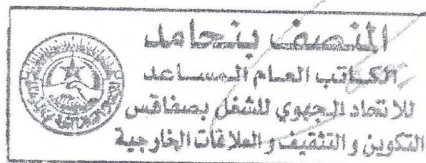 المنصف بنحامد
الكاتب العام المساعد
للاتحاد الجهوي للشغل بصفاقس
التكوين و التثقيف و العلاقات الخارجية